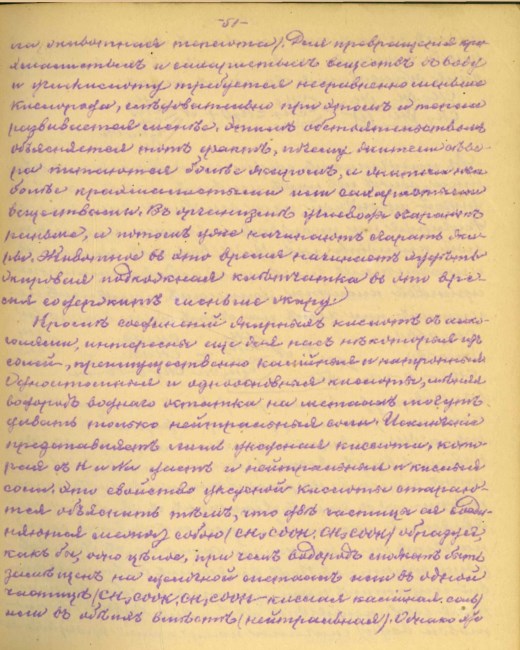 -51-
на, животная теплота). Для превращенія кра-
хмалистыхъ и сахаристыхъ веществъ въ воду
и углекислоту требуется несравненно меньше
кислорода, слѣдовательно при этомъ и тепла
развивается меньше. Этимъ обстоятельствомъ
объясняется тотъ фактъ, почему жители сѣве-
ра питаются болѣе жиромъ, а жители юга
болѣе крахмалистыми или сахаристыми
веществами. Въ организмѣ углеводы сгораютъ
раньше, и потомъ уже начинаютъ сгорать жи-
ры. Животное въ это время начинаетъ худѣть
жировая подкожная клѣтчатка въ это вре-
мя содержитъ меньше жиру)
Кромѣ соединеній жирныхъ кислотъ съ алко-
голями, интересны еще для насъ нѣкоторыя ихъ
соли, преимущественно калійныя и натронныя
Одноатомныя и одноосновныя кислоты, мѣняя
водородъ воднаго остатка на металлъ могутъ
давать только нейтральныя соли. Исключеніе
представляетъ лишь уксусная кислота, кото-
рая съ K и Na даетъ и нейтральныя и кислыя
соли. Это свойство уксусной кислоты стараю-
тся объяснить тѣмъ, что двѣ частицы ея соеди-
няются между собою (CH3COOH.CH3COOH) образуя
какъ бы, одно цѣлое, при чемъ водородъ можетъ быть
замѣщенъ на щелочной металлъ или въ одной
частицѣ (CH3COOK.CH3COOH - кислая калійная соль)
или въ обѣихъ вмѣстѣ (нейтральная). Однако